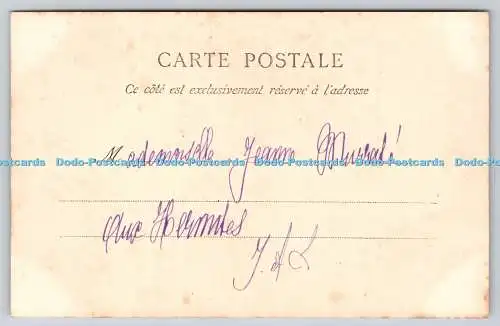 CARTE POSTALE
Ce côté est exclusivement réservé à l'adresse
Mademoiselle Jeanne
Dodo-Postcards Dodo-Postcards Dodo-Postcards Dodo-Postcards Dodo-Postcards
Aux Hermites
I & L